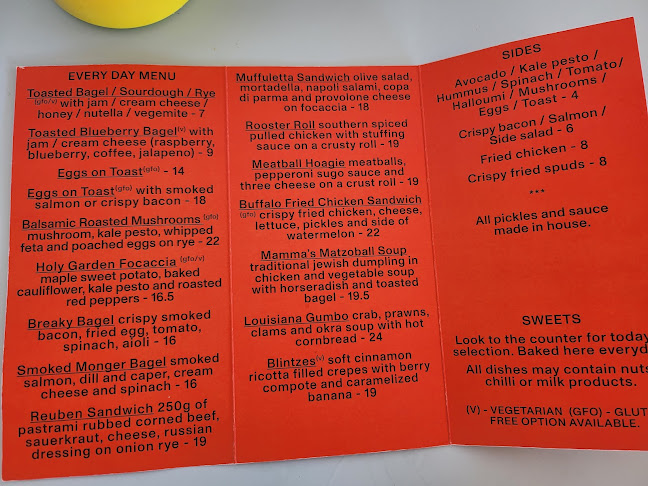 EVERY DAY MENU
Toasted Bagel / Sourdough / Rye
(gfo/v) with jam / cream cheese /
honey / nutella / vegemite - 7
Toasted Blueberry Bagel(v) with
jam / cream cheese (raspberry,
blueberry, coffee, jalapeno) - 9
Eggs on Toast(gfo) - 14
Eggs on Toast(gfo) with smoked
salmon or crispy bacon - 18
Balsamic Roasted Mushrooms (gfo)
mushroom, kale pesto, whipped
feta and poached eggs on rye - 22
Holy Garden Focaccia (gfo/v)
maple sweet potato, baked
cauliflower, kale pesto and roasted
red peppers - 16.5
Breaky Bagel crispy smoked
bacon, fried egg, tomato,
spinach, aioli - 16
Smoked Monger Bagel smoked
salmon, dill and caper, cream
cheese and spinach - 16
Reuben Sandwich 250g of
pastrami rubbed corned beef,
sauerkraut, cheese, russian
dressing on onion rye - 19
Muffuletta Sandwich olive salad,
mortadella, napoli salami, copa
di parma and provolone cheese
on focaccia - 18
Rooster Roll southern spiced
pulled chicken with stuffing
sauce on a crusty roll - 19
Meatball Hoagie meatballs,
pepperoni sugo sauce and
three cheese on a crust roll - 19
Buffalo Fried Chicken Sandwich
(gfo) crispy fried chicken, cheese,
lettuce, pickles and side of
watermelon - 22
Mamma's Matzoball Soup
traditional jewish dumpling in
chicken and vegetable soup
with horseradish and toasted
bagel - 19.5
Louisiana Gumbo crab, prawns,
clams and okra soup with hot
cornbread - 24
Blintzes(v) soft cinnamon
ricotta filled crepes with berry
compote and caramelized
banana - 19
SIDES
Avocado / Kale pesto /
Hummus / Spinach / Tomato/
Halloumi / Mushrooms /
Eggs / Toast - 4
Crispy bacon / Salmon /
Side salad - 6
Fried chicken - 8
Crispy fried spuds - 8
***
All pickles and sauce
made in house.
SWEETS
Look to the counter for today
selection. Baked here everyd
All dishes may contain nuts
chilli or milk products.
(V) - VEGETARIAN (GFO) - GLUT
FREE OPTION AVAILABLE.